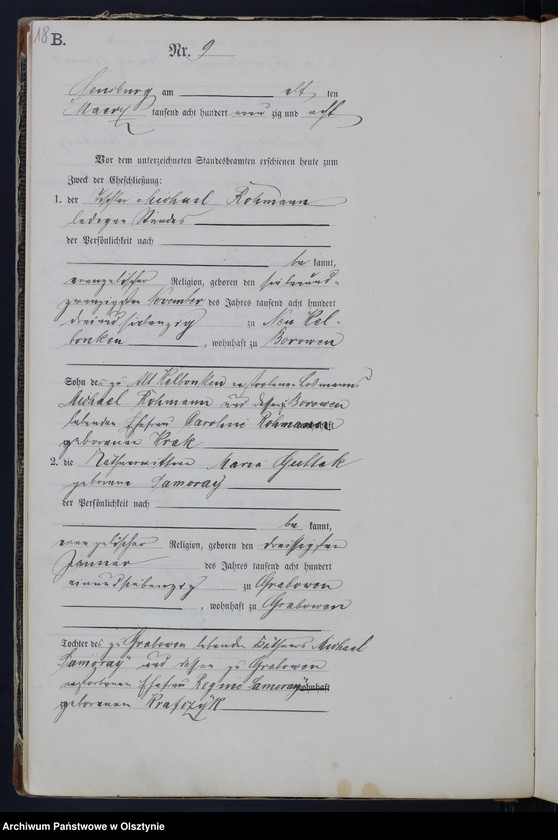 18
B.
Nr. 9
Sensburg am elf ten
Maerz tausend acht hundert neun zig und acht
Vor dem unterzeichneten Standesbeamten erschienen heute zum
Zweck der Eheschließung:
1. der Michael Rohmann
ledigen Standes
der Persönlichkeit nach
be kannt,
evangelischer Religion, geboren den siebenund-
zwanzigsten November des Jahres tausend acht hundert
dreiundsiebenzig zu Neu Kel-
bonken , wohnhaft zu Borowen
Sohn des zu Alt Kelbonken verstorbenen Losmanns
Michael Rohmann und dessen zu Borowen
lebenden Ehefrau Caroline Rohmann
geborenen Krak
2. die Maria Gullak
geborene Samoray
der Persönlichkeit nach
be kannt,
evangelischer Religion, geboren den dreissigsten
Januar des Jahres tausend acht hundert
einundsiebenzig zu Grabowen
, wohnhaft zu Grabowen
Tochter des zu Grabowen lebenden Michael
Samoray und dessen zu Grabowen
verstorbenen Ehefrau Regine Samoray wohnhaft
geborenen Krafczyk
Archiwum Państwowe w Olsztynie